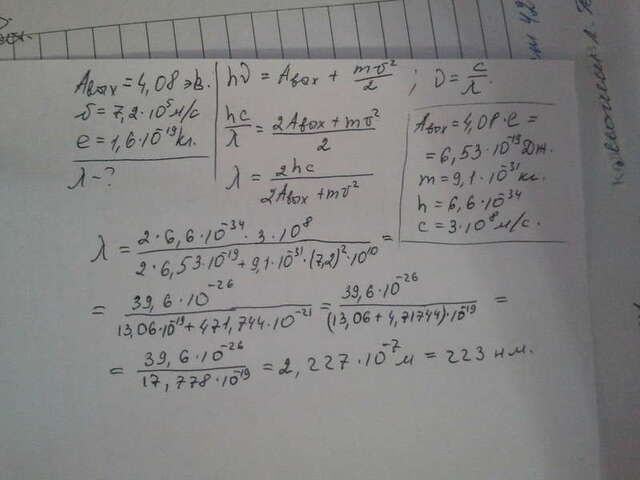 Aвых = 4,08 эв.
υ = 7,2·10⁵ м/с
e = 1,6·10⁻¹⁹ кл.
λ - ?
hν = Aвых + mυ²/2 ; ν = c/λ.
hc/λ = (2Aвых + mυ²)/2
λ = 2hc/(2Aвых + mυ²)
Aвых = 4,08·e =
= 6,53·10⁻¹⁹ Дж.
m = 9,1·10⁻³¹ кг.
h = 6,6·10⁻³⁴
c = 3·10⁸ м/с.
λ = (2·6,6·10⁻³⁴·3·10⁸)/(2·6,53·10⁻¹⁹ + 9,1·10⁻³¹·(7,2)²·10¹⁰) =
= (39,6·10⁻²⁶)/(13,06·10⁻¹⁹ + 471,744·10⁻²¹) = (39,6·10⁻²⁶)/((13,06 + 4,71744)·10⁻¹⁹) =
= (39,6·10⁻²⁶)/(17,778·10⁻¹⁹) = 2,227·10⁻⁷ м = 223 нм.